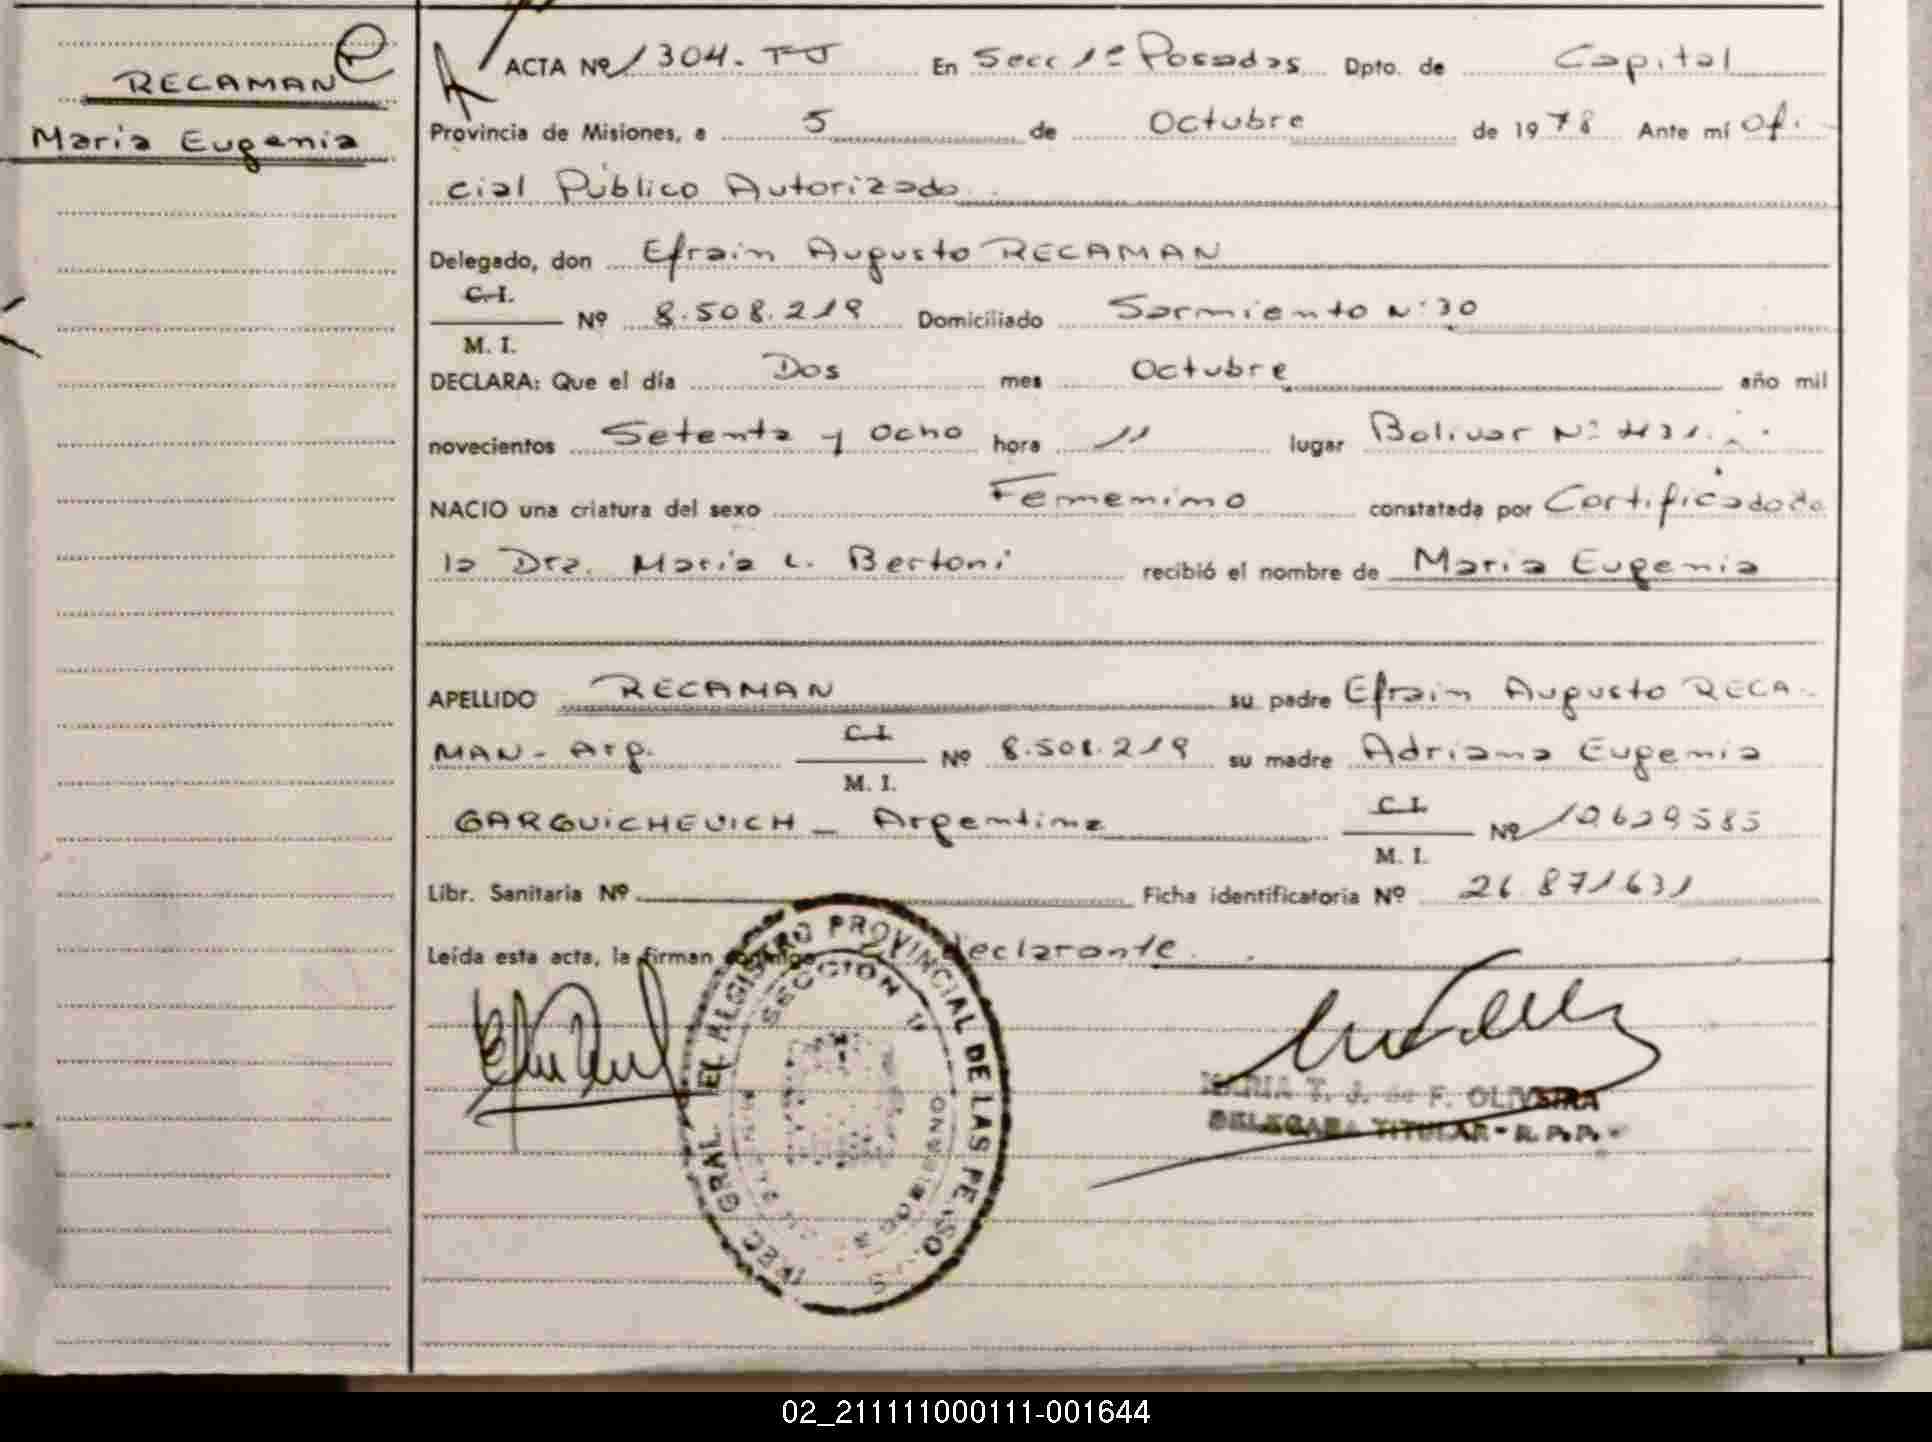 RECAMAN
Maria Eugenia
ACTA Nº 1304. TJ En Secc 1ª Posadas Dpto. de Capital
Provincia de Misiones, a 5 de Octubre de 1978 Ante mí Ofi-
cial Público Autorizado
Delegado, don Efrain Augusto RECAMAN
C.I.
Nº 8.508.219 Domiciliado Sarmiento Nº 30
M. I.
DECLARA: Que el día Dos mes Octubre año mil
novecientos Setenta y Ocho hora 11 lugar Bolivar Nº 431.
NACIO una criatura del sexo Femenino constatada por Certificado de
la Dra. Maria L. Bertoni recibió el nombre de Maria Eugenia
APELLIDO RECAMAN su padre Efrain Augusto RECA-
MAN - Arg. C.I. Nº 8.508.219 su madre Adriana Eugenia
M. I.
GARGUICHEVICH - Argentina C.I. Nº 10629585
M. I.
Libr. Sanitaria Nº Ficha identificatoria Nº 26.871631
Leída esta acta, la firman conmigo el declarante.
REGISTRO PROVINCIAL DE LAS PERSO
SECCION 1ª
MARIA T. J. de F. OLIVEIRA
DELEGADA TITULAR - R.P.P.
02_211111000111-001644